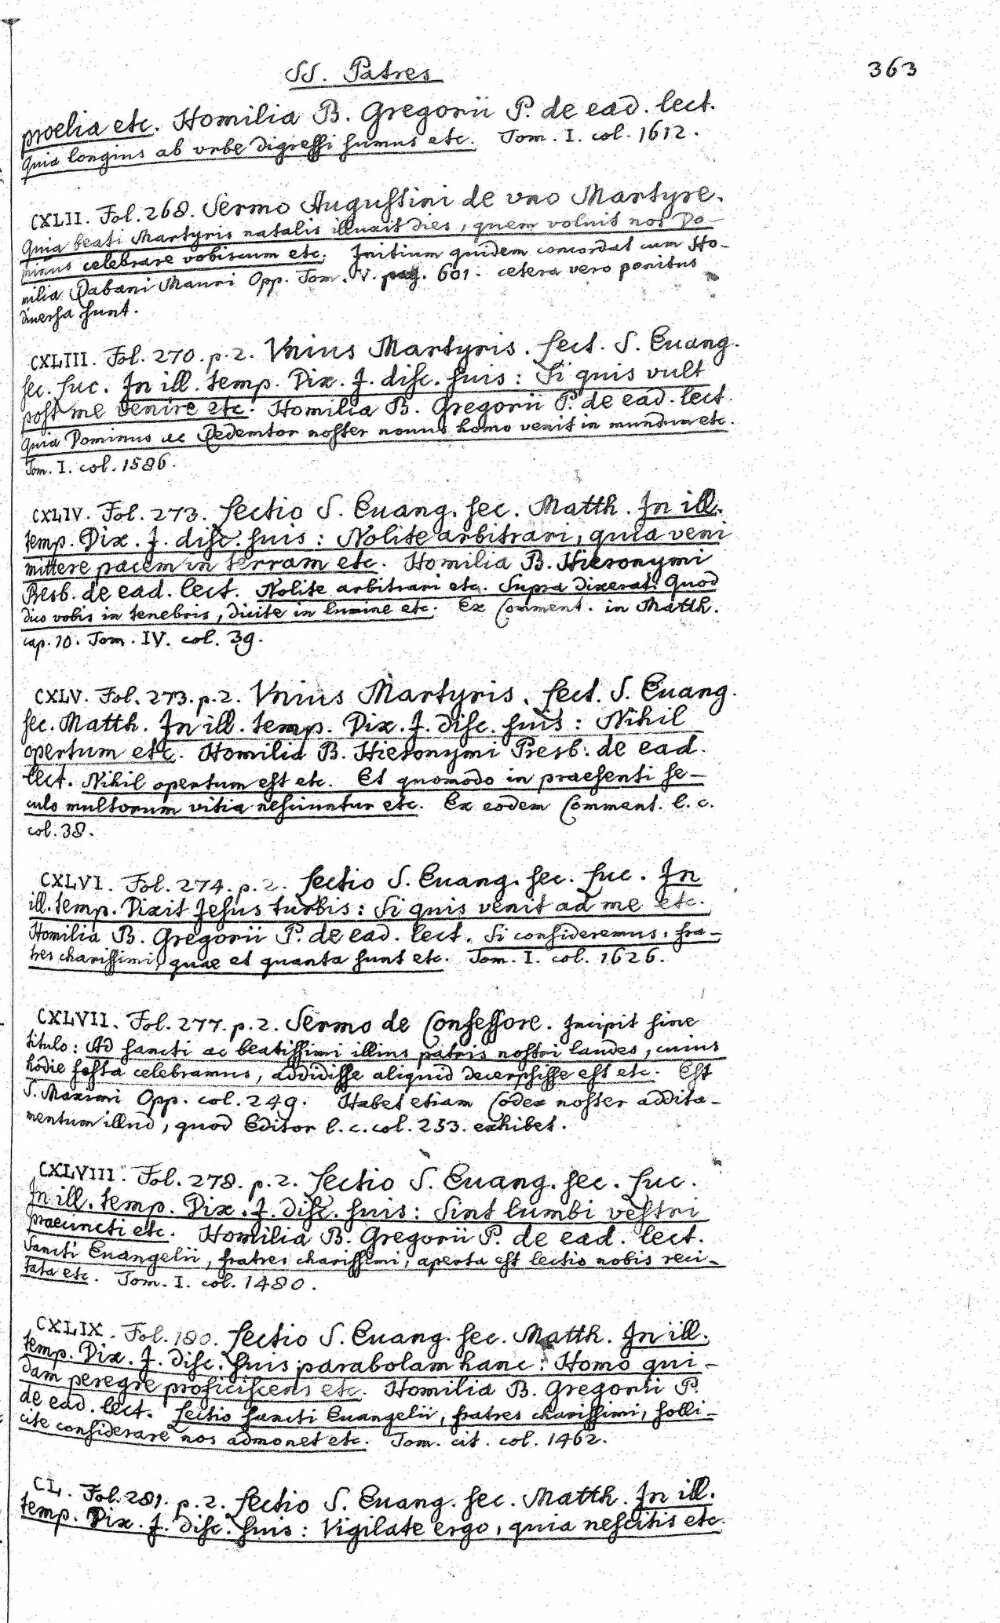 SS. Patres
363
proelia etc. Homilia B. Gregorii P. de ead. lect.
Quia longius ab vrbe digressi sumus etc. Tom. I. col. 1612.
CXLII. Fol. 268. Sermo Augustini de vno Martyre.
Quia beati Martyris natalis illuxit dies, quem voluit nos Do-
minus celebrare vobiscum etc. Initium quidem concordat cum Ho-
milia Rabani Mauri Opp. Tom. V. pag. 601. cetera vero penitus
diuersa sunt.
CXLIII. Fol. 270. p. 2. Vnius Martyris. Lect. S. Euang.
sec. Luc. In ill. temp. Dix. J. disc. suis: Si quis vult
post me venire etc. Homilia B. Gregorii P. de ead. lect.
Quia Dominus ac Redemtor noster nouus homo venit in mundum etc.
Tom. I. col. 1586.
CXLIV. Fol. 273. Lectio S. Euang. sec. Matth. In ill.
temp. Dix. J. disc. suis: Nolite arbitrari, quia veni
mittere pacem in terram etc. Homilia B. Hieronymi
Presb. de ead. lect. Nolite arbitrari etc. Supra dixerat: Quod
dico vobis in tenebris, dicite in lumine etc. Ex Comment. in Matth.
cap. 10. Tom. IV. col. 39.
CXLV. Fol. 273. p. 2. Vnius Martyris. Lect. S. Euang.
sec. Matth. In ill. temp. Dix. J. disc. suis: Nihil
opertum etc. Homilia B. Hieronymi Presb. de ead.
lect. Nihil opertum est etc. Et quomodo in praesenti se-
culo multorum vitia nesciuntur etc. Ex eodem Comment. l. c.
col. 38.
CXLVI. Fol. 274. p. 2. Lectio S. Euang. sec. Luc. In
ill. temp. Dixit Jesus turbis: Si quis venit ad me etc.
Homilia B. Gregorii P. de ead. lect. Si consideremus, fra-
tres charissimi, quae et quanta sunt etc. Tom. I. col. 1626.
CXLVII. Fol. 277. p. 2. Sermo de Confessore. Incipit sine
titulo: Ad sancti ac beatissimi illius patris nostri laudes, cuius
hodie festa celebramus, addidisse aliquid decerpsisse est etc. Est
S. Maximi Opp. col. 249. Habet etiam Codex noster addita-
mentum illud, quod Editor l. c. col. 253. exhibet.
CXLVIII. Fol. 278. p. 2. Lectio S. Euang. sec. Luc.
In ill. temp. Dix. J. disc. suis: Sint lumbi vestri
praecincti etc. Homilia B. Gregorii P. de ead. lect.
Sancti Euangelii, fratres charissimi, aperta est lectio nobis reci-
tata etc. Tom. I. col. 1480.
CXLIX. Fol. 180. Lectio S. Euang. sec. Matth. In ill.
temp. Dix. J. disc. suis parabolam hanc: Homo qui-
dam peregre proficiscens etc. Homilia B. Gregorii P.
de ead. lect. Lectio sancti Euangelii, fratres charissimi, solli-
cite considerare nos admonet etc. Tom. cit. col. 1462.
CL. Fol. 281. p. 2. Lectio S. Euang. sec. Matth. In ill.
temp. Dix. J. disc. suis: Vigilate ergo, quia nescitis etc.